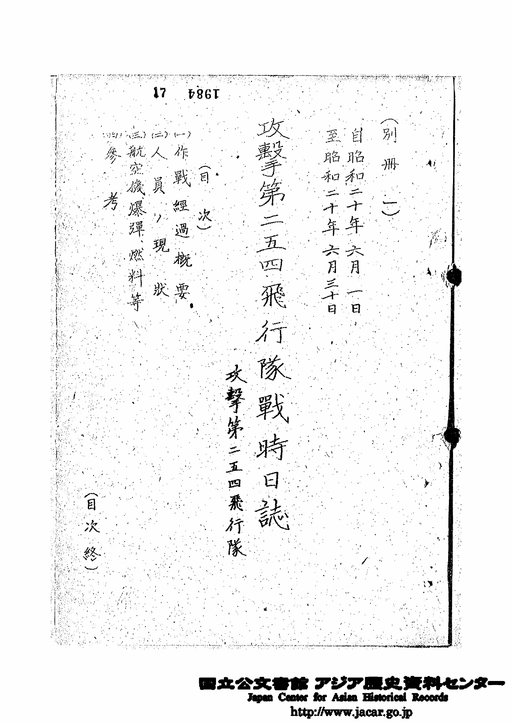 (別冊一)
自昭和二十年六月一日
至昭和二十年六月三十日
攻撃第二五四飛行隊戰時日誌
攻撃第二五四飛行隊
(目次)
(一)作戰經過概要
(二)人員ノ現狀
(三)航空機爆彈燃料等
(四)參考
(目次終)
1984 71
国立公文書館 アジア歴史資料センター
Japan Center for Asian Historical Records
http://www.jacar.go.jp